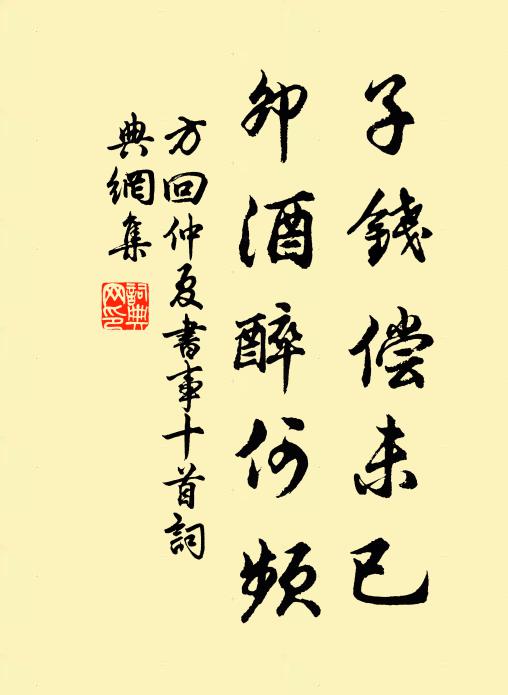 子錢偿未已
卯酒醉何頻
方回仲夏書事十首詞
典網集
詞典网印